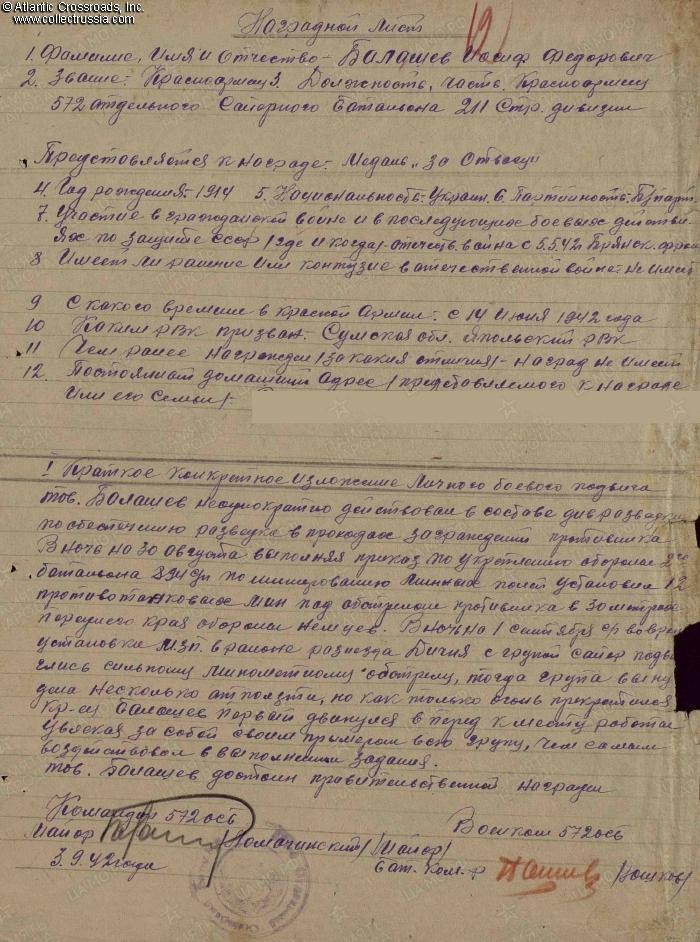 © Atlantic Crossroads, Inc.
www.collectrussia.com
Наградной Лист
1. Фамилие, имя и отчество – Балашев Иосиф Федорович
2. Звание – Красноармеец 3. Должность, часть, Красноармеец
572 отдельного Саперного Батальона 211 Стр. дивизии
Представляется к награде – Медаль „за Отвагу"
4. Год рождения – 1914 5. Национальность – Украин. 6. Партийность – Б/парт.
7. Участие в гражданской войне и в последующих боевых действи-
ях по защите СССР /где и когда/ – отечеств. война с 5.5.42 Брянск. фрон
8 Имеет ли ранение или контузие в отечественной войне – не имеет
9 С какого времени в красной Армии – с 14 Июня 1942 года
10 Каким РВК призван – Сумская обл. РВК
11 Чем ранее награжден /за какия отличия/ – наград не имеет
12. Постоянный домашний Адрес /представляемого к награде
или его семьи/ –
I Краткое конкретное изложение личного боевого подвига
тов. Балашев неоднократно действовал в составе див. разведки
по обеспечению разведке в проходах заграждений противника
В ночь на 30 августа выполняя приказ по укреплению обороны 2го
батальона 894 сп по минированию минных полей установил 12
противотанковых мин под обстрелом противника в 30 метрах
переднего края обороны немцев. В ночь на 1 сентября с/г во врем
установки МЗП. в районе разъезда Бичия с групой сапер подве
глись сильному минометному обстрелу, тогда група выну
дила несколько отползти, но как только огонь прекратился
кр-ец Балашев первый двинулся в перед к месту работы
увлекая за собой своим примером всю групу, чем самым
воздействовал в выполнении задания.
тов. Балашев достоин правительственной награды
Командир 572 осб
Майор /Комачинский/
3.9.42 года
Военком 572 осб
/Майор/
бат. Ком-р